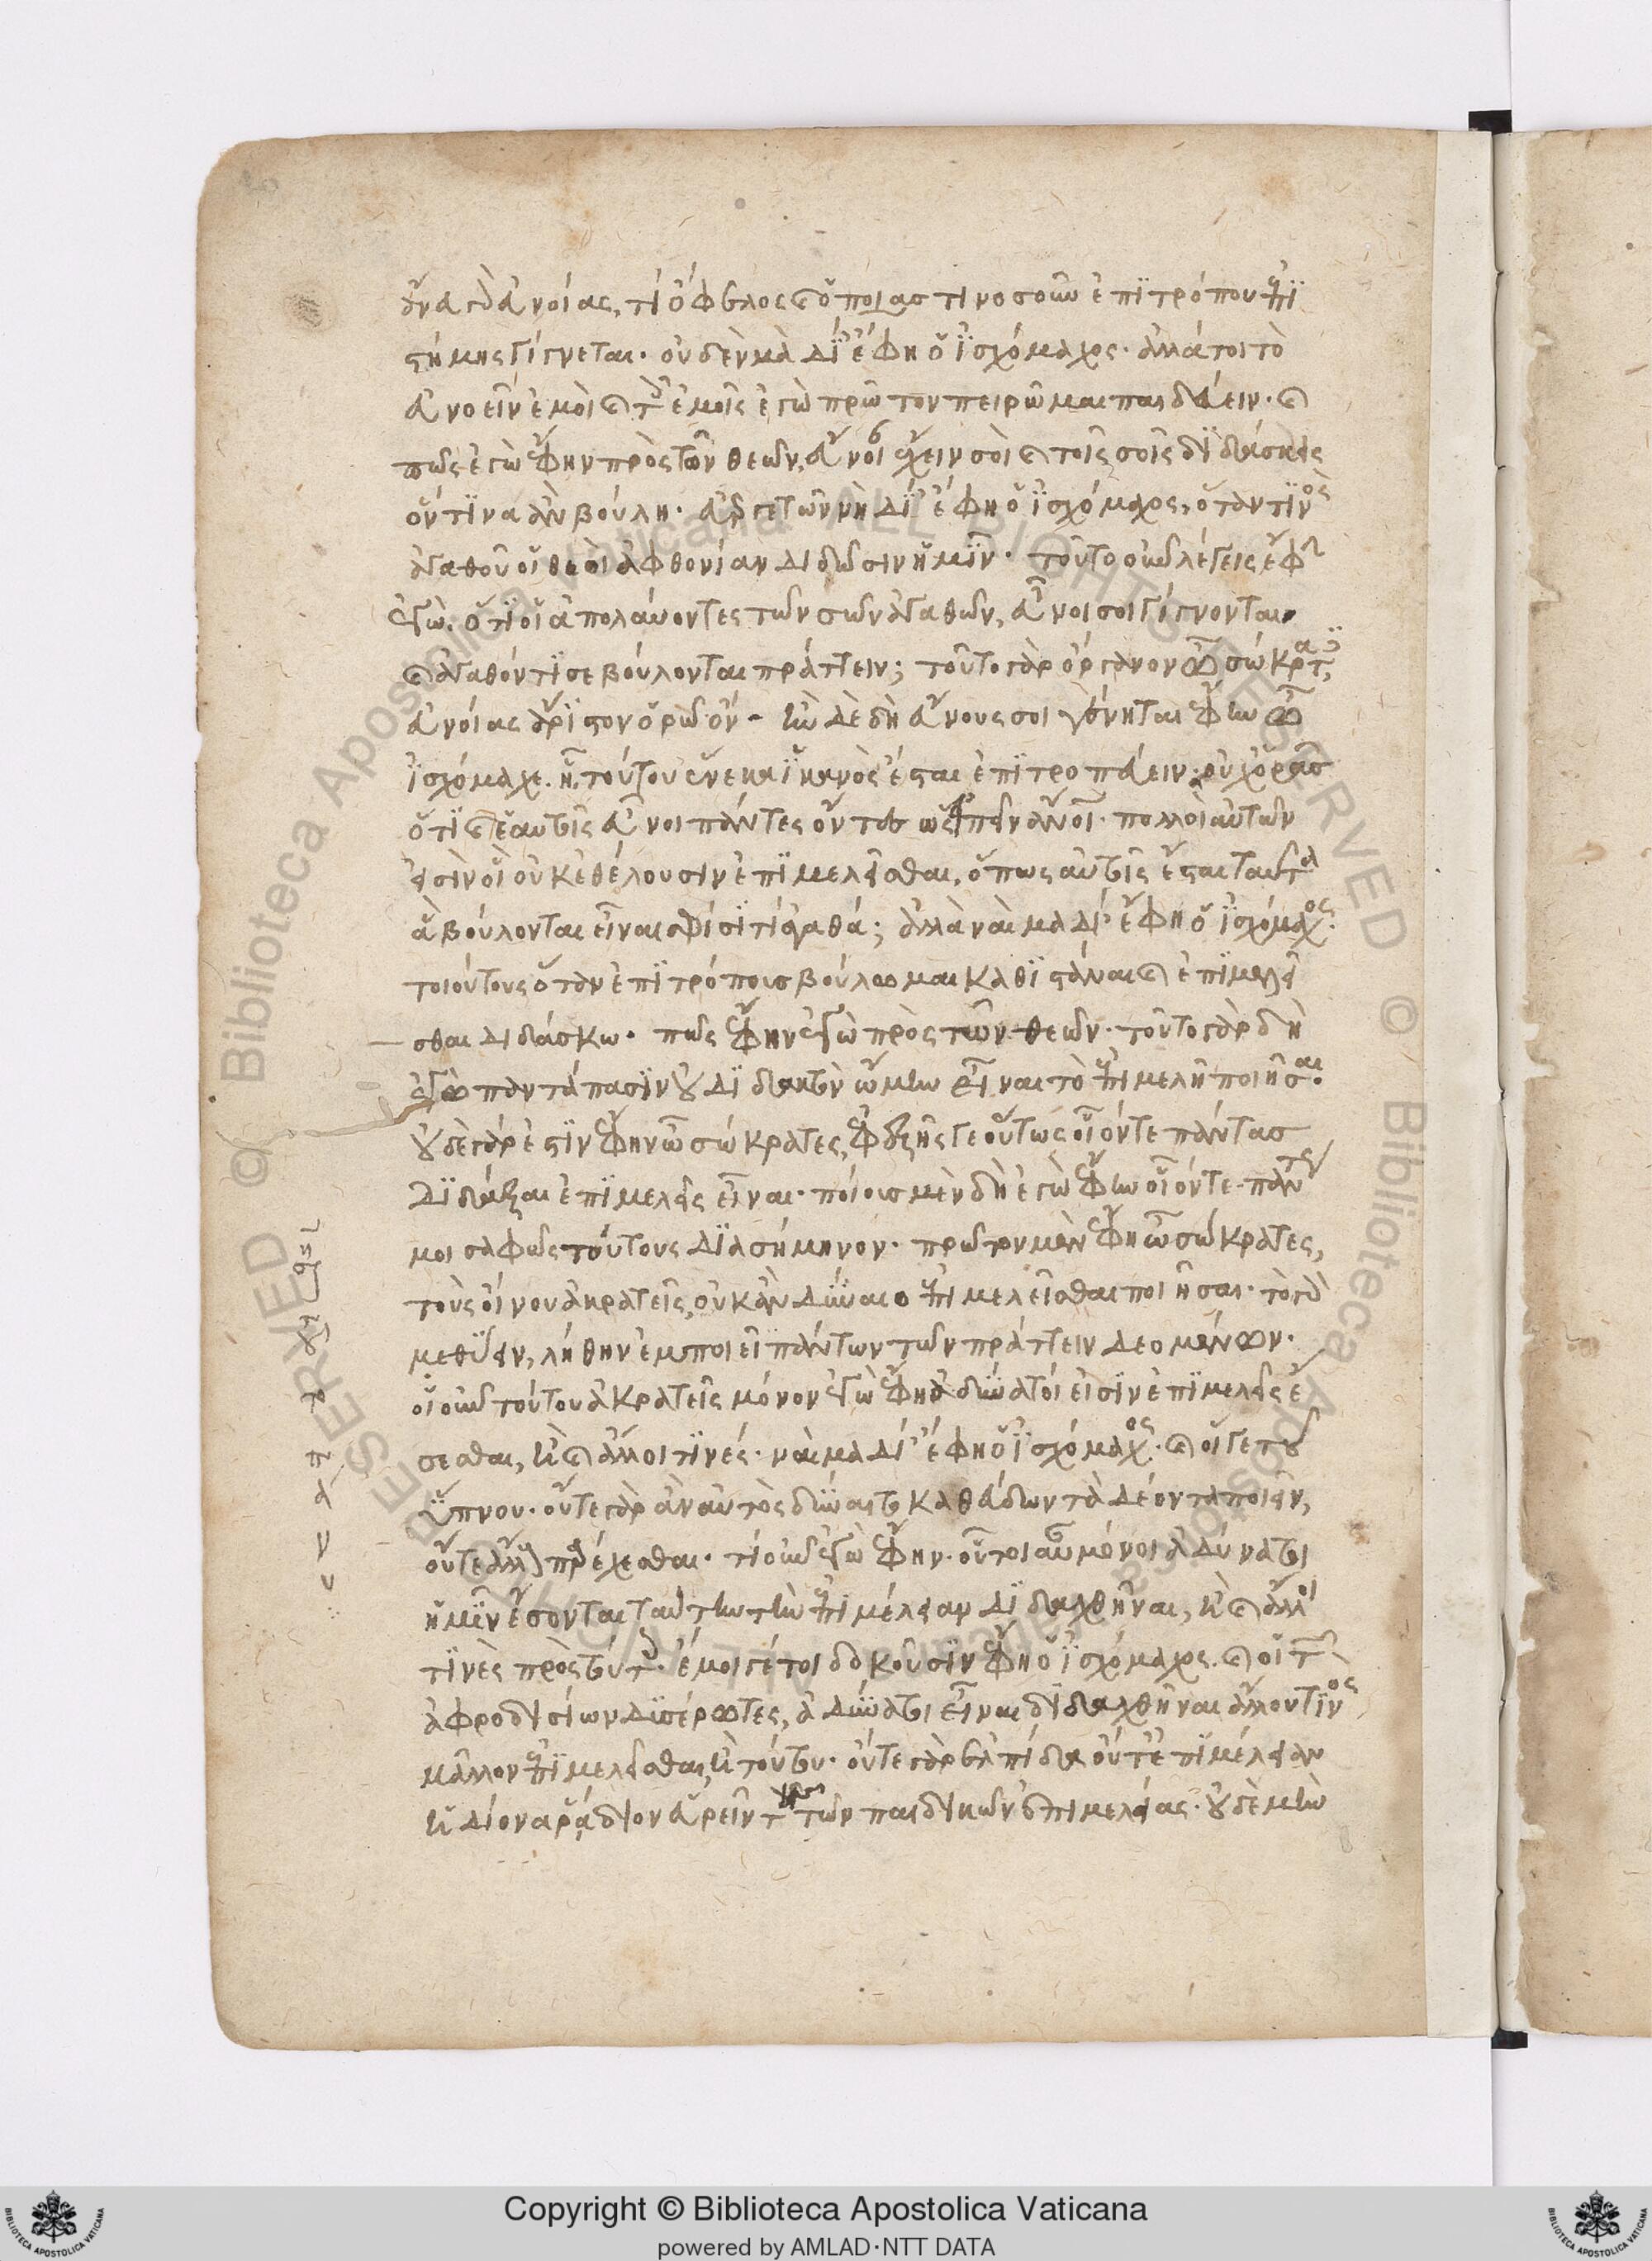 ἄνευ γὰρ εὐνοίας, τί ὄφελος καὶ ὁποίας τινοσοῦν ἐπιτρόπου ἐπι
στήμης γίγνεται. οὐδὲν μὰ Δί' ἔφη ὁ ἰσχόμαχος. ἀλλά τοι τὸ
εὐνοεῖν ἐμοὶ καὶ τοῖς ἐμοῖς ἐγὼ πρῶτον πειρῶμαι παιδεύειν. καὶ
πῶς ἐγὼ ἔφην πρὸς τῶν θεῶν, εὔνοιαν ἔχειν σοὶ καὶ τοῖς σοῖς διδάσκεις
ὅντινα ἂν βούλῃ. εὐεργετῶν νὴ Δί' ἔφη ὁ ἰσχόμαχος, ὅταν τινὸς
ἀγαθοῦ οἱ θεοὶ ἀφθονίαν διδῶσιν ἡμῖν. τοῦτο οὖν λέγεις ἔφην
ἐγὼ. ὅτι οἱ ἀπολαύοντες τῶν σῶν ἀγαθῶν, εὖνοι σοι γίγνονται
καὶ ἀγαθόν τι σε βούλονται πράττειν; τοῦτο γὰρ ὄργανον ὦ σώκρατες
εὐνοίας ἄριστον ὁρῶ ὄν. ἢν δὲ δὴ εὔνους σοι γένηται ἔφην ὦ
ἰσχόμαχε. ἦ τούτου ἕνεκα ἱκανὸς ἔσται ἐπιτροπεύειν. οὐχ ὁρᾷς
ὅτι καὶ ἑαυτοῖς εὖνοι πάντες ὄντες ὡς εἰπεῖν ἄνθρωποι. πολλοὶ αὐτῶν
εἰσὶν οἳ οὐκ ἐθέλουσιν ἐπιμελεῖσθαι, ὅπως αὐτοῖς ἔσται ταῦτα
ἃ βούλονται εἶναι σφίσι τἀγαθά; ἀλλὰ ναὶ μὰ Δί' ἔφη ὁ ἰσχόμαχος.
τοιούτους ὅταν ἐπιτρόπους βούλωμαι καθιστάναι καὶ ἐπιμελεῖ
σθαι διδάσκω. πῶς ἔφην ἐγὼ πρὸς τῶν θεῶν. τοῦτο γὰρ δὴ
ἐγὼ παντάπασιν οὐ διδακτὸν ᾤμην εἶναι τὸ ἐπιμελῆ ποιῆσαι.
οὐδὲ γάρ ἐστιν ἔφη ὦ σώκρατες, ἐφεξῆς γε οὕτως οἷόν τε πάντας
διδάξαι ἐπιμελεῖς εἶναι. ποίους μὲν δὴ ἐγὼ ἔφην οἷόν τε. πάντως
μοι σαφῶς τούτους διασήμηνον. πρῶτον μὲν ἔφη ὦ σώκρατες,
τοὺς οἴνου ἀκρατεῖς, οὐκ ἂν δύναιο ἐπιμελεῖσθαι ποιῆσαι. τὸ γὰρ
μεθύειν, λήθην ἐμποιεῖ πάντων τῶν πράττειν δεομένων.
οἱ οὖν τούτου ἀκρατεῖς μόνον ἐγὼ ἔφην ἀδύνατοί εἰσιν ἐπιμελεῖς ἔ
σεσθαι, ἢ καὶ ἄλλοι τινές. ναὶ μὰ Δί' ἔφη ὁ ἰσχόμαχος. καὶ οἵ γε τοῦ
ὕπνου. οὔτε γὰρ ἂν αὐτὸς δύναιτο καθεύδων τὰ δέοντα ποιεῖν,
οὔτε ἄλλους παρέχεσθαι. τί οὖν ἐγὼ ἔφην. οὗτοι αὖ μόνοι ἀδύνατοι
ἡμῖν ἔσονται ταύτην τὴν ἐπιμέλειαν διδαχθῆναι, ἢ καὶ ἄλλοι
τινὲς πρὸς τούτοις. ἔμοιγέ τοι δοκοῦσιν ἔφη ὁ ἰσχόμαχος. καὶ οἱ τῶν
ἀφροδισίων δισέρωτες, ἀδύνατοι εἶναι διδαχθῆναι ἄλλου τινὸς
μᾶλλον ἐπιμελεῖσθαι, ἢ τούτου. οὔτε γὰρ ἐλπίδα οὔτ' ἐπιμέλειαν
ἡδίονα ῥᾴδιον εὑρεῖν τῆς τῶν παιδικῶν ἐπιμελείας. οὐδὲ μὴν